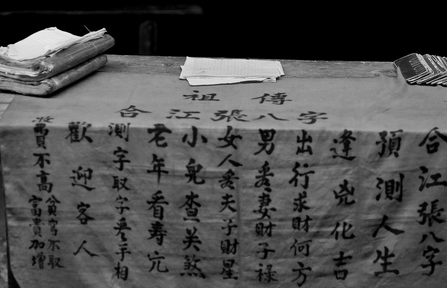 祖傳
合江張八字
合江張八字
預測人生
逢兇化吉
出行求財何方
男看妻財子祿
女人看夫子財星
小兒查关煞
老年看壽元
測字取字看手相
歡迎客人
費不高
貧苦不取
富貴加增